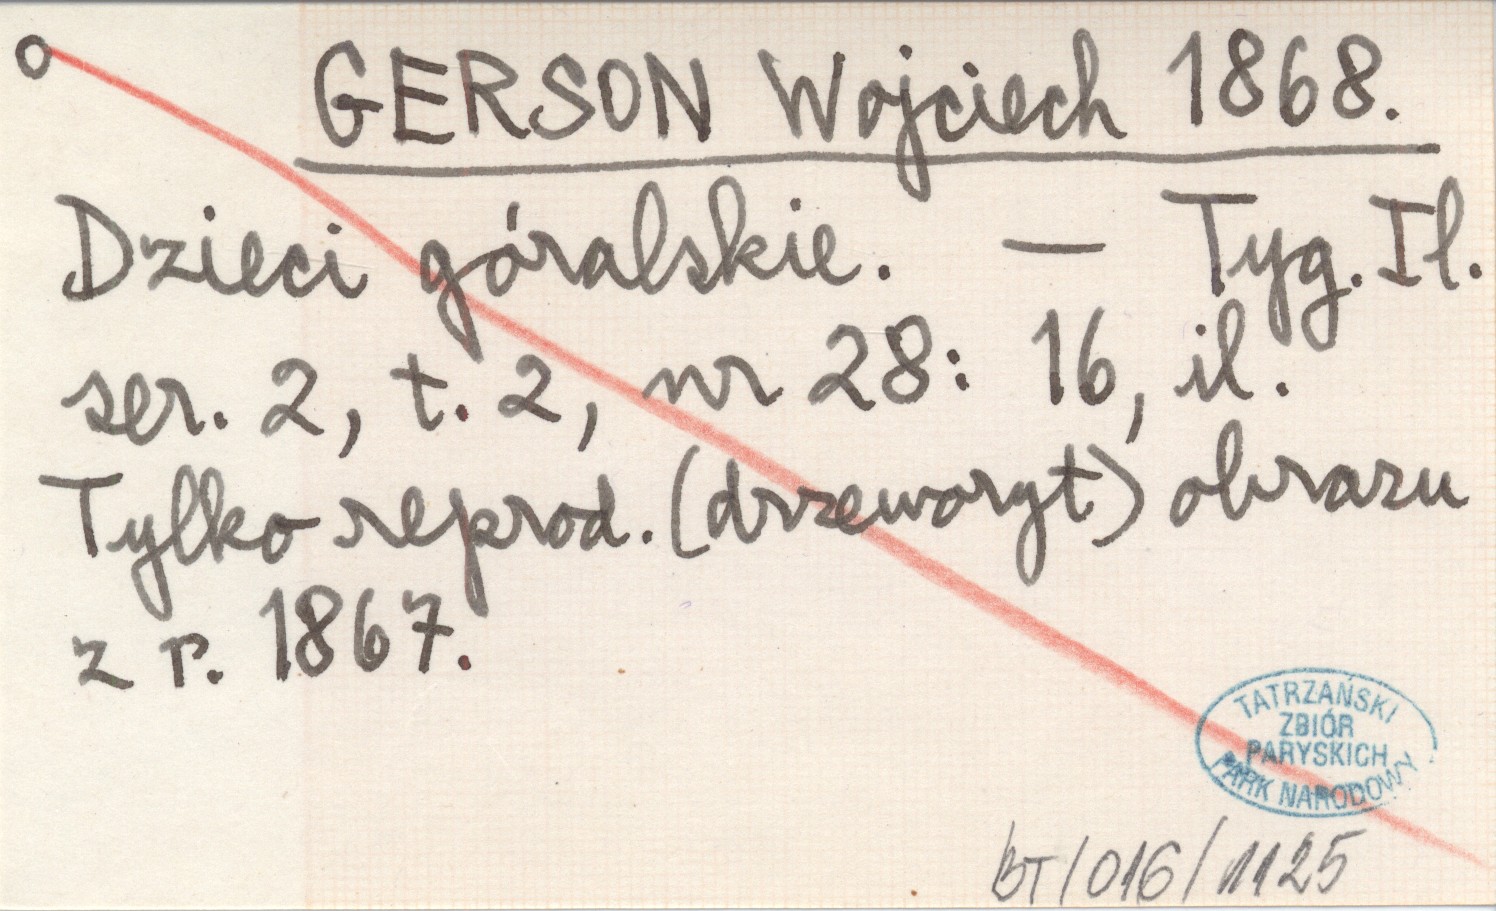 O GERSON Wojciech 1868.
Dzieci góralskie. — Tyg. Il.
ser. 2, t. 2, nr 28: 16, il.
Tylko reprod. (drzeworyt) obrazu
z r. 1867.
TATRZAŃSKI
ZBIÓR
PARYSKICH
PARK NARODOWY
BT/016/1125